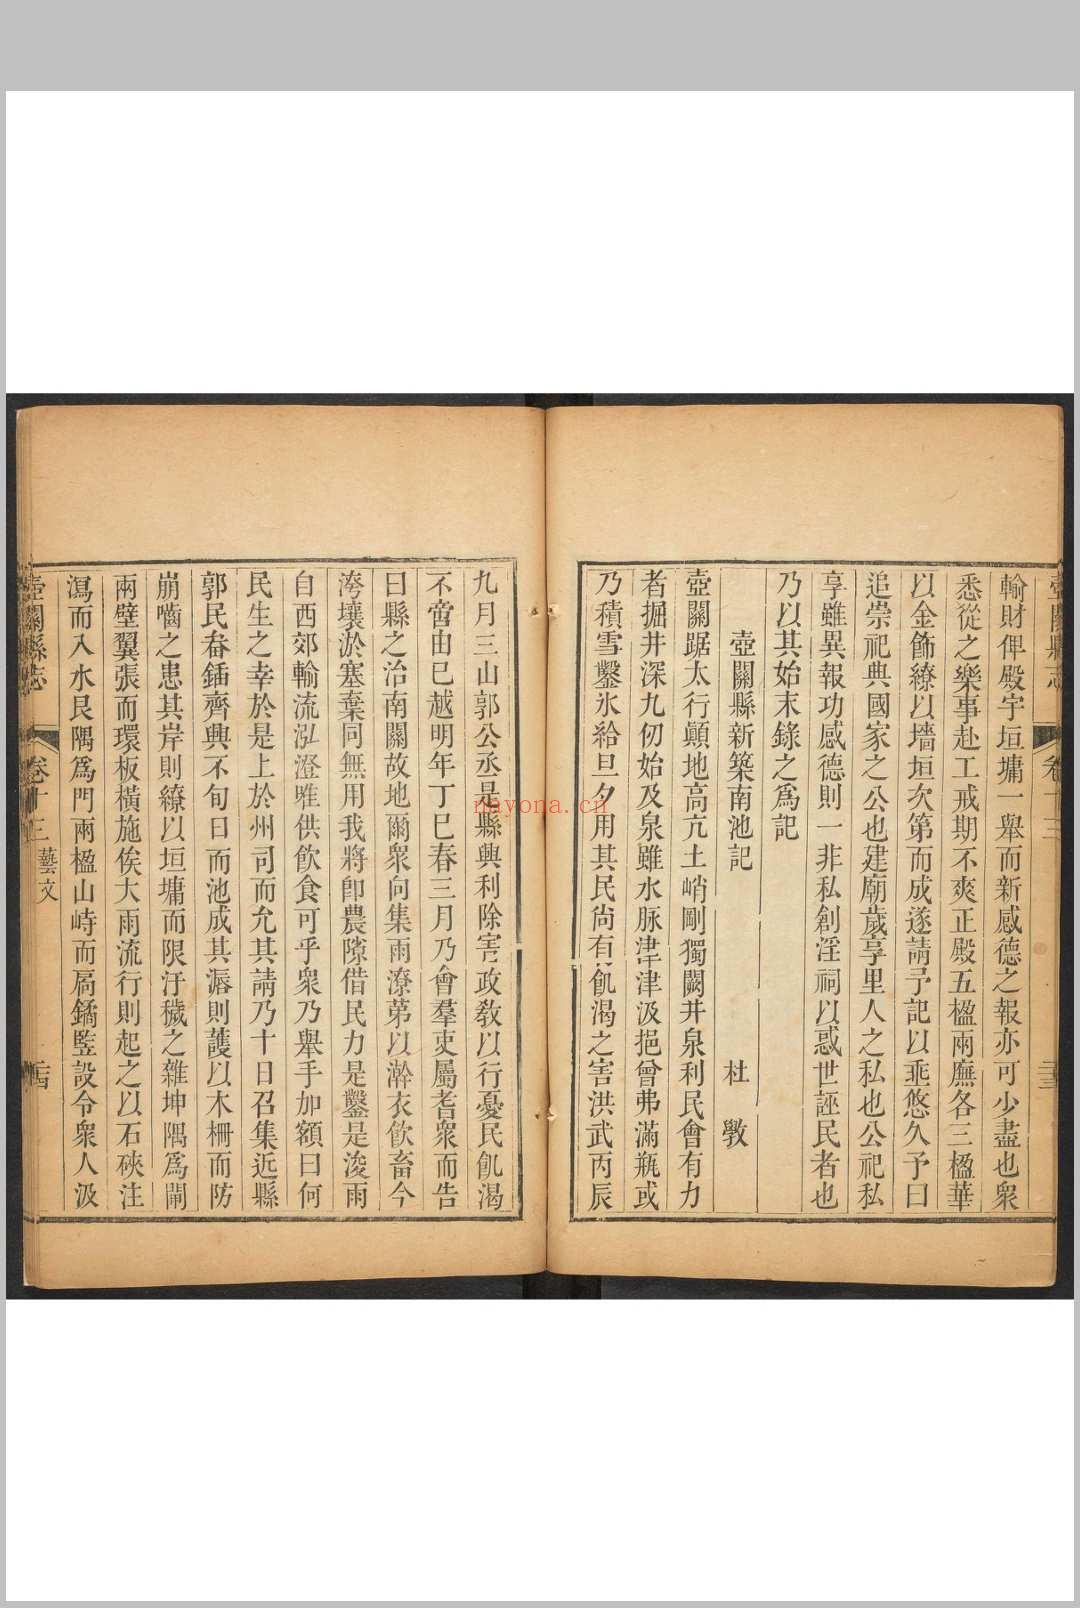 壺關縣志
卷十三
二十三
輸財俾殿宇垣墉一舉而新感德之報亦可少盡也衆
悉從之樂事赴工戒期不爽正殿五楹兩廡各三楹華
以金飾繚以墻垣次第而成遂請予記以垂悠久予曰
追崇祀典國家之公也建廟歲享里人之私也公祀私
享雖異報功感德則一非私創淫祠以惑世誣民者也
乃以其始末錄之爲記
壺關縣新築南池記
杜斅
壺關踞太行顚地高亢土峭剛獨闕井泉利民會有力
者掘井深九仞始及泉雖水脉津津汲挹曾弗滿瓶或
乃積雪鑿氷給旦夕用其民尚有飢渴之害洪武丙辰
九月三山郭公丞是縣興利除害政敎以行憂民飢渴
不啻由已越明年丁巳春三月乃會羣吏屬耆衆而告
曰縣之治南關故地爾衆向集雨潦苐以澣衣飲畜今
洿壤淤塞棄同無用我將卽農隙借民力是鑿是浚雨
自西郊輸流泓澄唯供飲食可乎衆乃舉手加額曰何
民生之幸於是上於州司而允其請乃十日召集近縣
郭民畚鍤齊興不旬日而池成其滣則護以木柵而防
崩嚙之患其岸則繚以垣墉而限汙穢之雜坤隅爲閘
兩壁翼張而環板橫施俟大雨流行則起之以石硤注
瀉而入水艮隅爲門兩楹山峙而扄鐍監設令衆人汲
壺關縣志
卷十三
藝文
二十四
nayona.cn